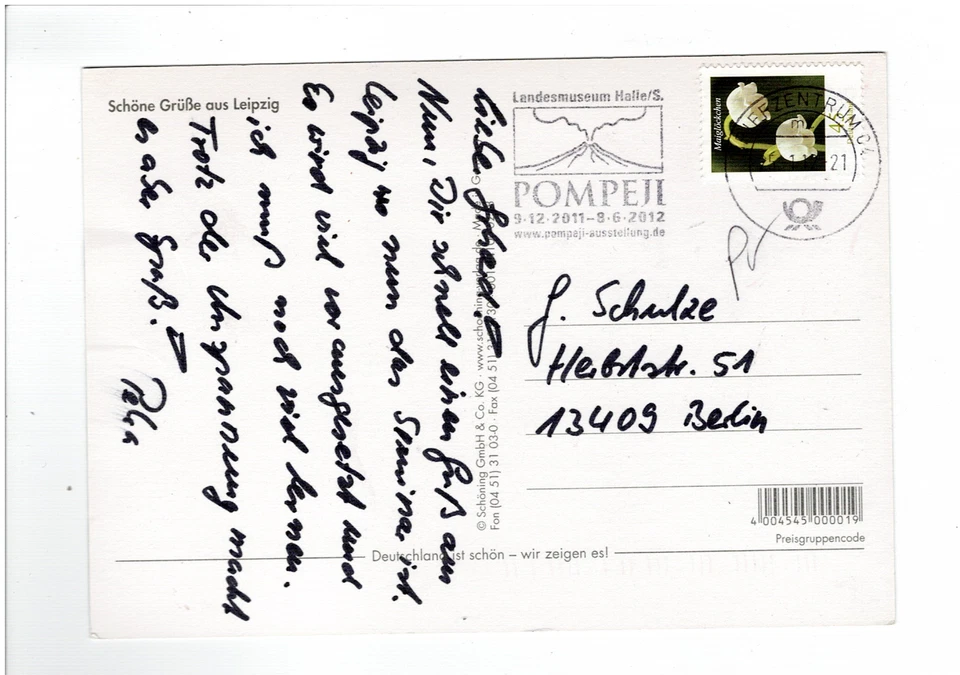 Schöne Grüße aus Leipzig
Liebe
Nun, Dir schnell einen Gruß aus
Leipzig wo nun das Seminar ist.
Es wird viel vorausgesetzt und
ich muß noch viel lernen.
Trotz der Anspannung macht
Gruß!
Landesmuseum Halle/S.
POMPEJI
9·12·2011–8·6·2012
www.pompeji-ausstellung.de
Maiglöckchen
BRIEFZENTRUM 04
21
Pr
G. Schulze
Herbststr. 51
13409 Berlin
© Schöning GmbH & Co. KG · www.schoening
Fon (04 51) 31 03-0 · Fax (04 51)
4 004545 000019
Preisgruppencode
Deutschland ist schön – wir zeigen es!